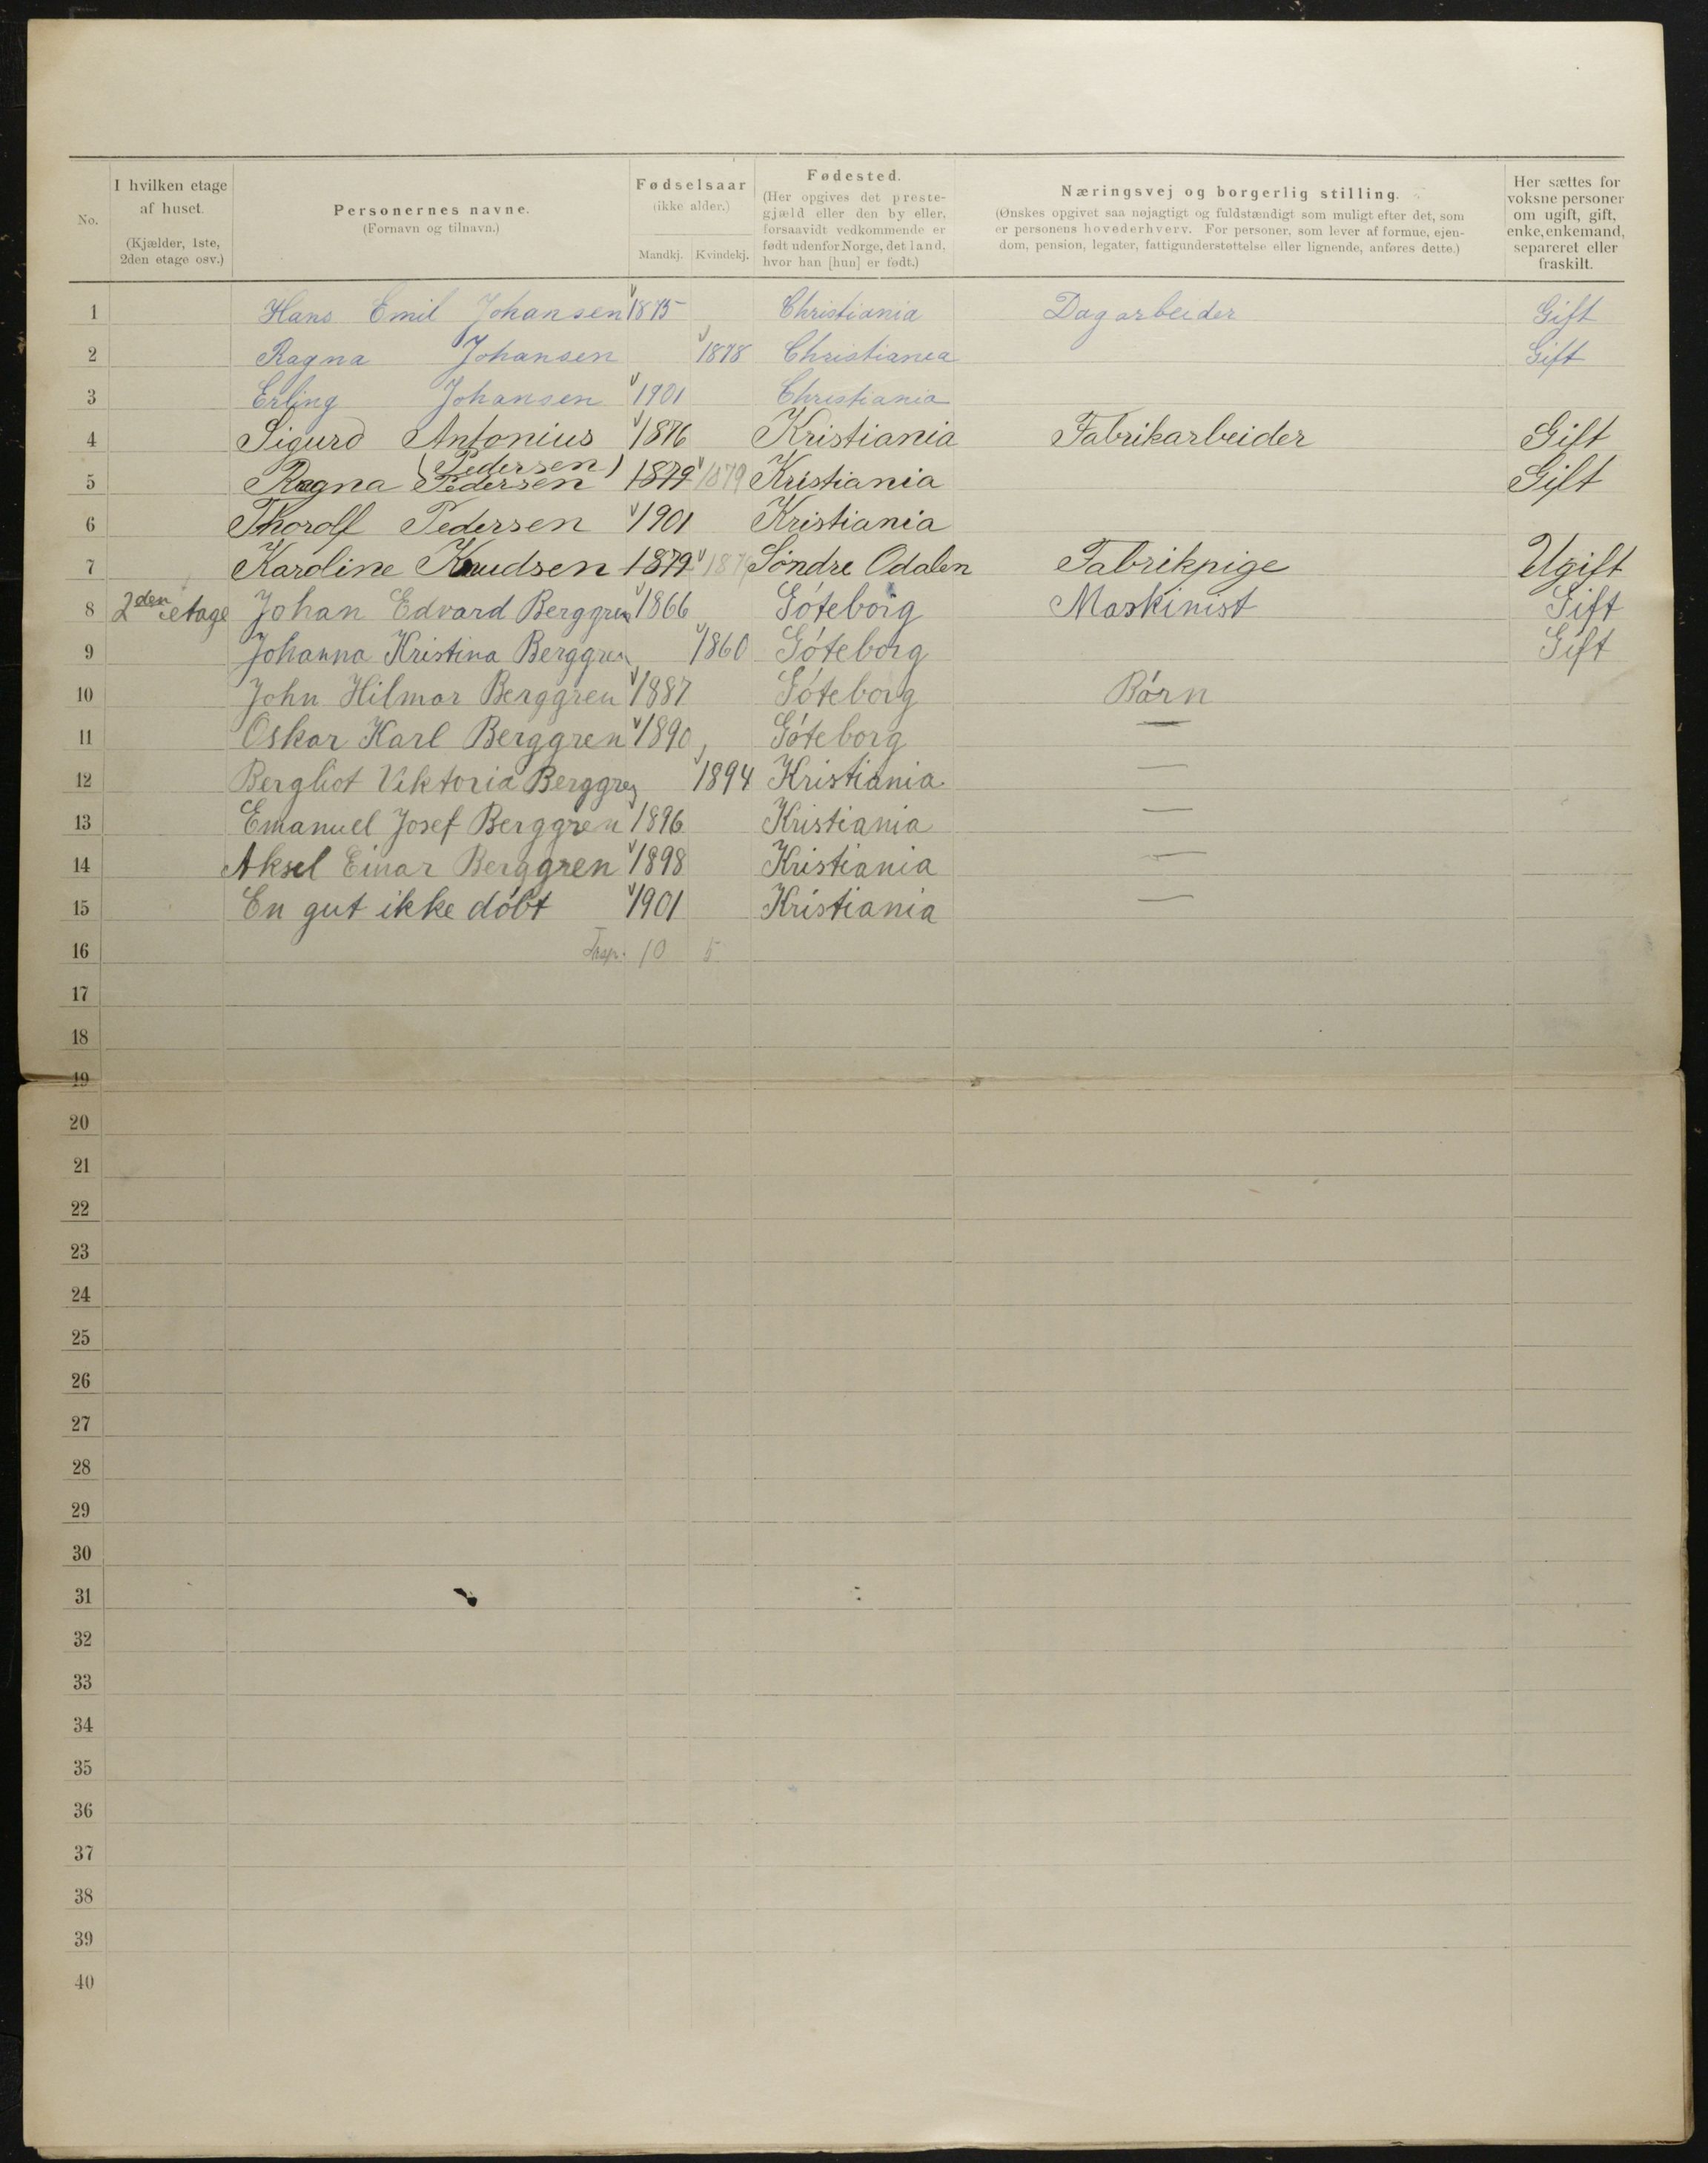 No.
I hvilken etage af huset. (Kjælder, 1ste, 2den etage osv.)
Personernes navne. (Fornavn og tilnavn.)
Fødselsaar (ikke alder.)
Mandkj. Kvindekj.
Fødested. (Her opgives det prestegjæld eller den by eller, forsaavidt vedkommende er født udenfor Norge, det land, hvor han [hun] er født.)
Næringsvej og borgerlig stilling.
(Ønskes opgivet saa nøjagtigt og fuldstændigt som muligt efter det, som er personens hovederhverv. For personer, som lever af formue, ejendom, pension, legater, fattigunderstøttelse eller lignende, anføres dette.)
Her sættes for voksne personer om ugift, gift, enke, enkemand, separeret eller fraskilt.
1 Hans Emil Johansen 1875 Christiania Dagarbeider Gift
2 Ragna Johansen 1878 Christiania Gift
3 Erling Johansen 1901 Christiania
4 Sigurd Antonius 1876 Kristiania Fabrikarbeider Gift
(Pedersen)
5 Ragna Pedersen 1879 1879 Kristiania Gift
6 Thorolf Pedersen 1901 Kristiania
7 Karoline Knudsen 1879 1879 Söndre Odalen Fabrikpige Ugift
8 2den etage Johan Edvard Berggren 1866 Góteborg Maskinist Gift
9 Johanna Kristina Berggren 1860 Góteborg Gift
10 John Hilmar Berggren 1887 Góteborg Bórn
11 Oskar Karl Berggren 1890, Góteborg —
12 Bergliot Viktoria Berggren 1894 Kristiania —
13 Emanuel Josef Berggren 1896 Kristiania —
14 Aksel Einar Berggren 1898 Kristiania —
15 En gut ikke dóbt 1901 Kristiania —
16 10 5
17
18
19
20
21
22
23
24
25
26
27
28
29
30
31
32
33
34
35
36
37
38
39
40